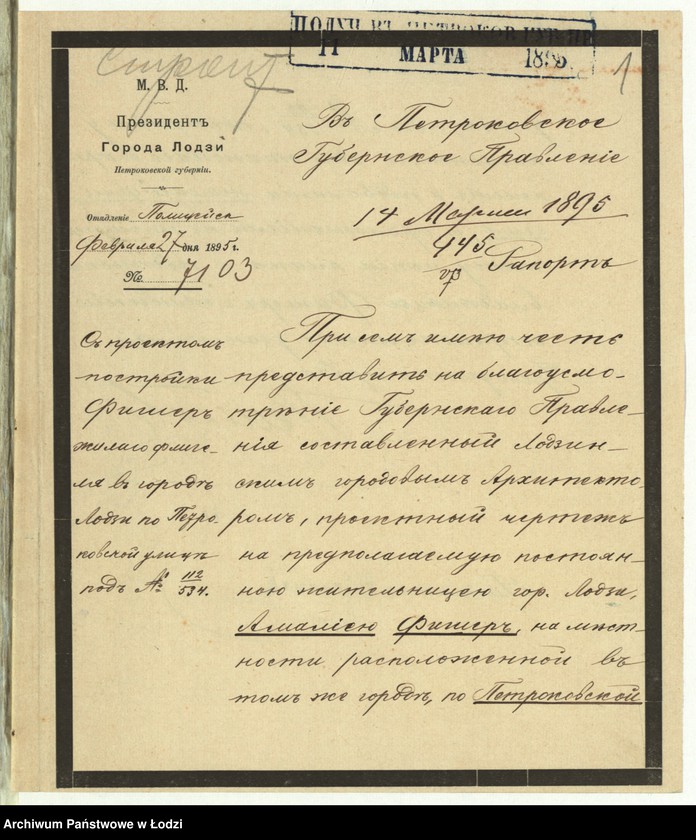 ПОЛУЧ. ВЪ ПЕТРОКОВ. ГУБ. ПР.
11 МАРТА 1895.
1
М. В. Д.
Президентъ
Города Лодзи
Петроковской губерніи.
Отдѣленіе Полицейск
Февраля 27 дня 1895 г.
№ 7103
Въ Петроковское
Губернское Правленіе
14 Марта 1895
445
Рапортъ
Съ проектомъ
постройки
Фишеръ
жилаго флиге-
ля въ городѣ
Лодзи по Петро-
ковской улицѣ
подъ № 112/534.
При семъ имѣю честь
представить на благоусмо-
трѣніе Губернскаго Правле-
нія составленный Лодзин-
скимъ городовымъ Архитекто-
ромъ, проектный чертежъ
на предполагаемую постоян-
ною жительницею гор. Лодзи,
Амаліею Фишеръ, на мѣст-
ности расположенной въ
томъ же городѣ, по Петроковской
Archiwum Państwowe w Łodzi